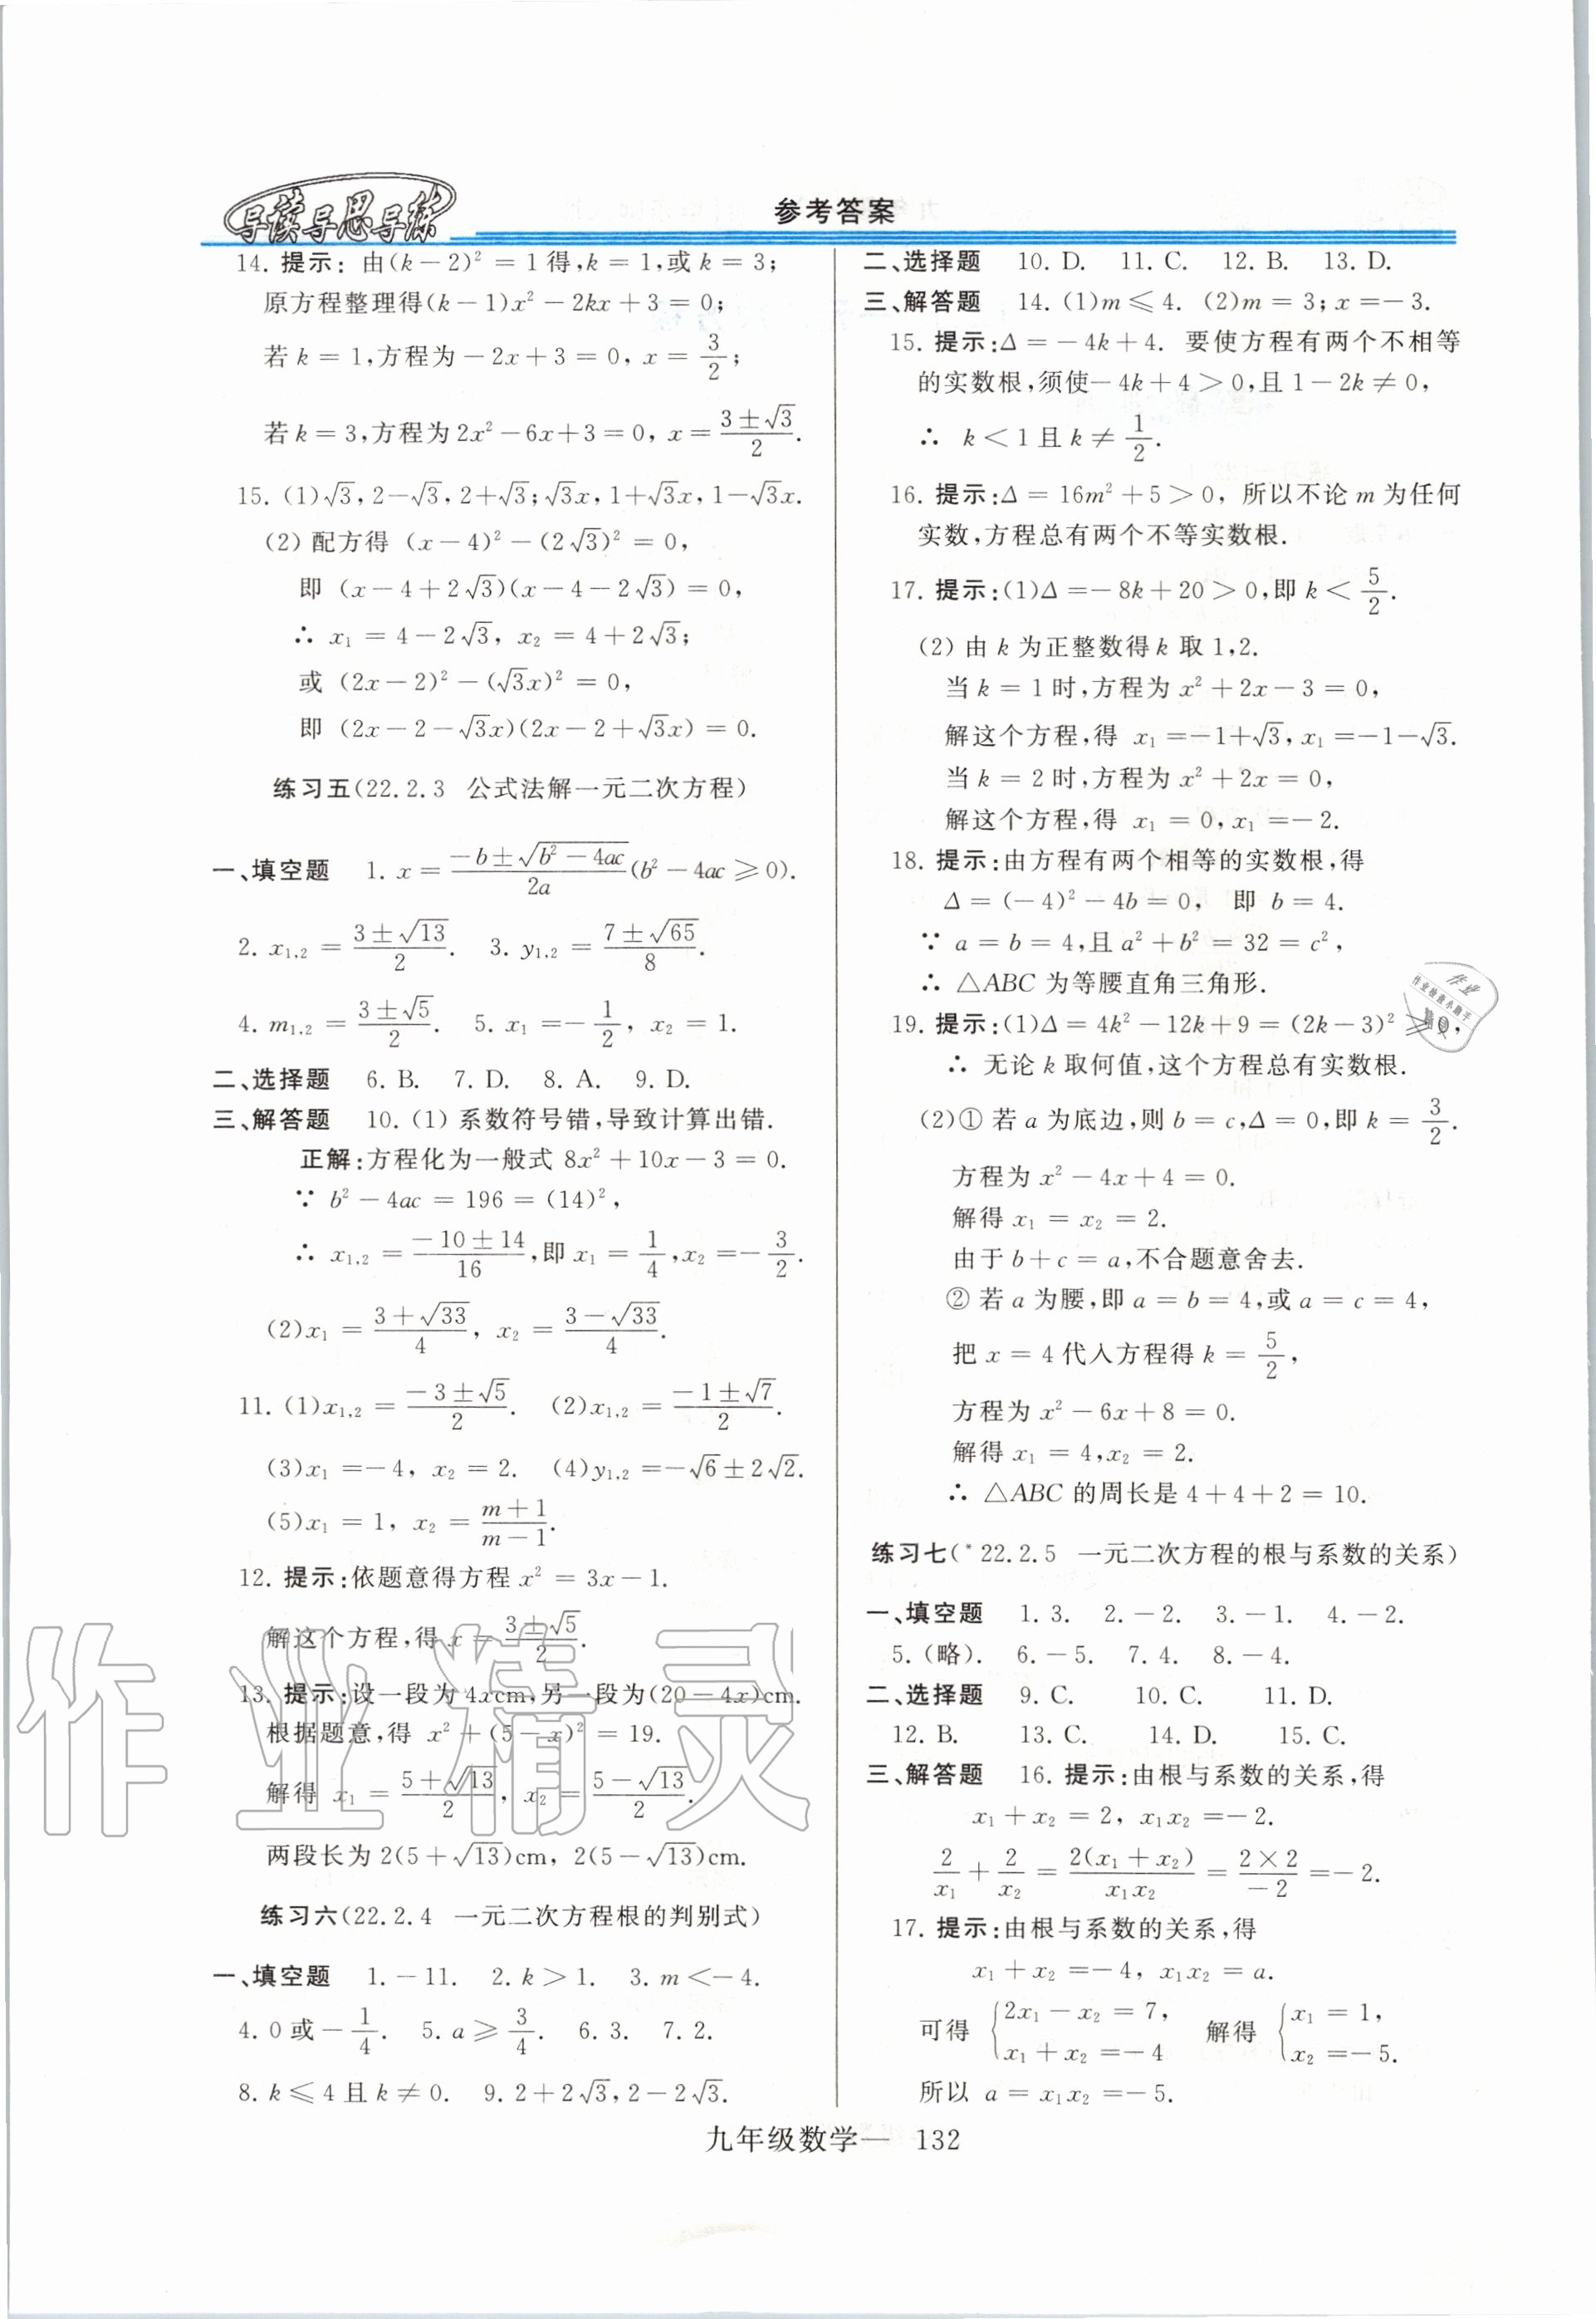 导读导思导练
参考答案
14. 提示: 由(k－2)² = 1得,k = 1,或k = 3;
原方程整理得(k－1)x²－2kx＋3 = 0;
若k = 1,方程为－2x＋3 = 0, x = 3/2;
若k = 3,方程为2x²－6x＋3 = 0, x = (3±√3)/2.
15. (1)√3, 2－√3, 2＋√3; √3x, 1＋√3x, 1－√3x.
(2) 配方得 (x－4)²－(2√3)² = 0,
即 (x－4＋2√3)(x－4－2√3) = 0,
∴ x₁ = 4－2√3, x₂ = 4＋2√3;
或 (2x－2)²－(√3x)² = 0,
即 (2x－2－√3x)(2x－2＋√3x) = 0.
练习五(22.2.3 公式法解一元二次方程)
一、填空题 1. x = (－b±√(b²－4ac))/2a (b²－4ac ≥ 0).
2. x₁,₂ = (3±√13)/2. 3. y₁,₂ = (7±√65)/8.
4. m₁,₂ = (3±√5)/2. 5. x₁ =－1/2, x₂ = 1.
二、选择题 6. B. 7. D. 8. A. 9. D.
三、解答题 10. (1) 系数符号错,导致计算出错.
正解:方程化为一般式 8x²＋10x－3 = 0.
∵ b²－4ac = 196 = (14)²,
∴ x₁,₂ = (－10±14)/16,即 x₁ = 1/4, x₂ =－3/2.
(2)x₁ = (3＋√33)/4, x₂ = (3－√33)/4.
11. (1)x₁,₂ = (－3±√5)/2. (2)x₁,₂ = (－1±√7)/2.
(3)x₁ =－4, x₂ = 2. (4)y₁,₂ =－√6±2√2.
(5)x₁ = 1, x₂ = (m＋1)/(m－1).
12. 提示:依题意得方程 x² = 3x－1.
解这个方程,得 x = (3±√5)/2.
13. 提示:设一段为4xcm,另一段为(20－4x)cm.
根据题意,得 x²＋(5－x)² = 19.
解得 x₁ = (5＋√13)/2, x₂ = (5－√13)/2.
两段长为2(5＋√13)cm, 2(5－√13)cm.
练习六(22.2.4 一元二次方程根的判别式)
一、填空题 1. －11. 2. k＞1. 3. m＜－4.
4. 0或－1/4. 5. a ≥ 3/4. 6. 3. 7. 2.
8. k ≤ 4 且 k ≠ 0. 9. 2＋2√3, 2－2√3.
二、选择题 10. D. 11. C. 12. B. 13. D.
三、解答题 14. (1)m ≤ 4. (2)m = 3; x =－3.
15. 提示:Δ =－4k＋4. 要使方程有两个不相等
的实数根,须使－4k＋4＞0,且1－2k ≠ 0,
∴ k＜1且k ≠ 1/2.
16. 提示:Δ = 16m²＋5＞0, 所以不论m为任何
实数,方程总有两个不等实数根.
17. 提示:(1)Δ =－8k＋20＞0,即k＜5/2.
(2) 由k为正整数得k取1,2.
当k = 1时,方程为x²＋2x－3 = 0,
解这个方程,得 x₁ =－1＋√3, x₁ =－1－√3.
当k = 2时,方程为x²＋2x = 0,
解这个方程,得 x₁ = 0, x₁ =－2.
18. 提示:由方程有两个相等的实数根,得
Δ = (－4)²－4b = 0, 即 b = 4.
∵ a = b = 4,且a²＋b² = 32 = c²,
∴ △ABC为等腰直角三角形.
19. 提示:(1)Δ = 4k²－12k＋9 = (2k－3)² ≥ 0,
∴ 无论k取何值,这个方程总有实数根.
(2)① 若a为底边,则b = c,Δ = 0,即k = 3/2.
方程为x²－4x＋4 = 0.
解得x₁ = x₂ = 2.
由于b＋c = a,不合题意舍去.
② 若a为腰,即a = b = 4,或a = c = 4,
把x = 4代入方程得k = 5/2,
方程为x²－6x＋8 = 0.
解得x₁ = 4, x₂ = 2.
∴ △ABC的周长是4＋4＋2 = 10.
练习七(*22.2.5 一元二次方程的根与系数的关系)
一、填空题 1. 3. 2. －2. 3. －1. 4. －2.
5. (略). 6. －5. 7. 4. 8. －4.
二、选择题 9. C. 10. C. 11. D.
12. B. 13. C. 14. D. 15. C.
三、解答题 16. 提示:由根与系数的关系,得
x₁＋x₂ = 2, x₁x₂ =－2.
2/x₁＋2/x₂ = 2(x₁＋x₂)/x₁x₂ = (2×2)/－2 =－2.
17. 提示:由根与系数的关系,得
x₁＋x₂ =－4, x₁x₂ = a.
可得 {2x₁－x₂ = 7, x₁＋x₂ =－4 解得 {x₁ = 1, x₂ =－5.
所以 a = x₁x₂ =－5.
九年级数学— 132
作业精灵
作业
作业检查小助手